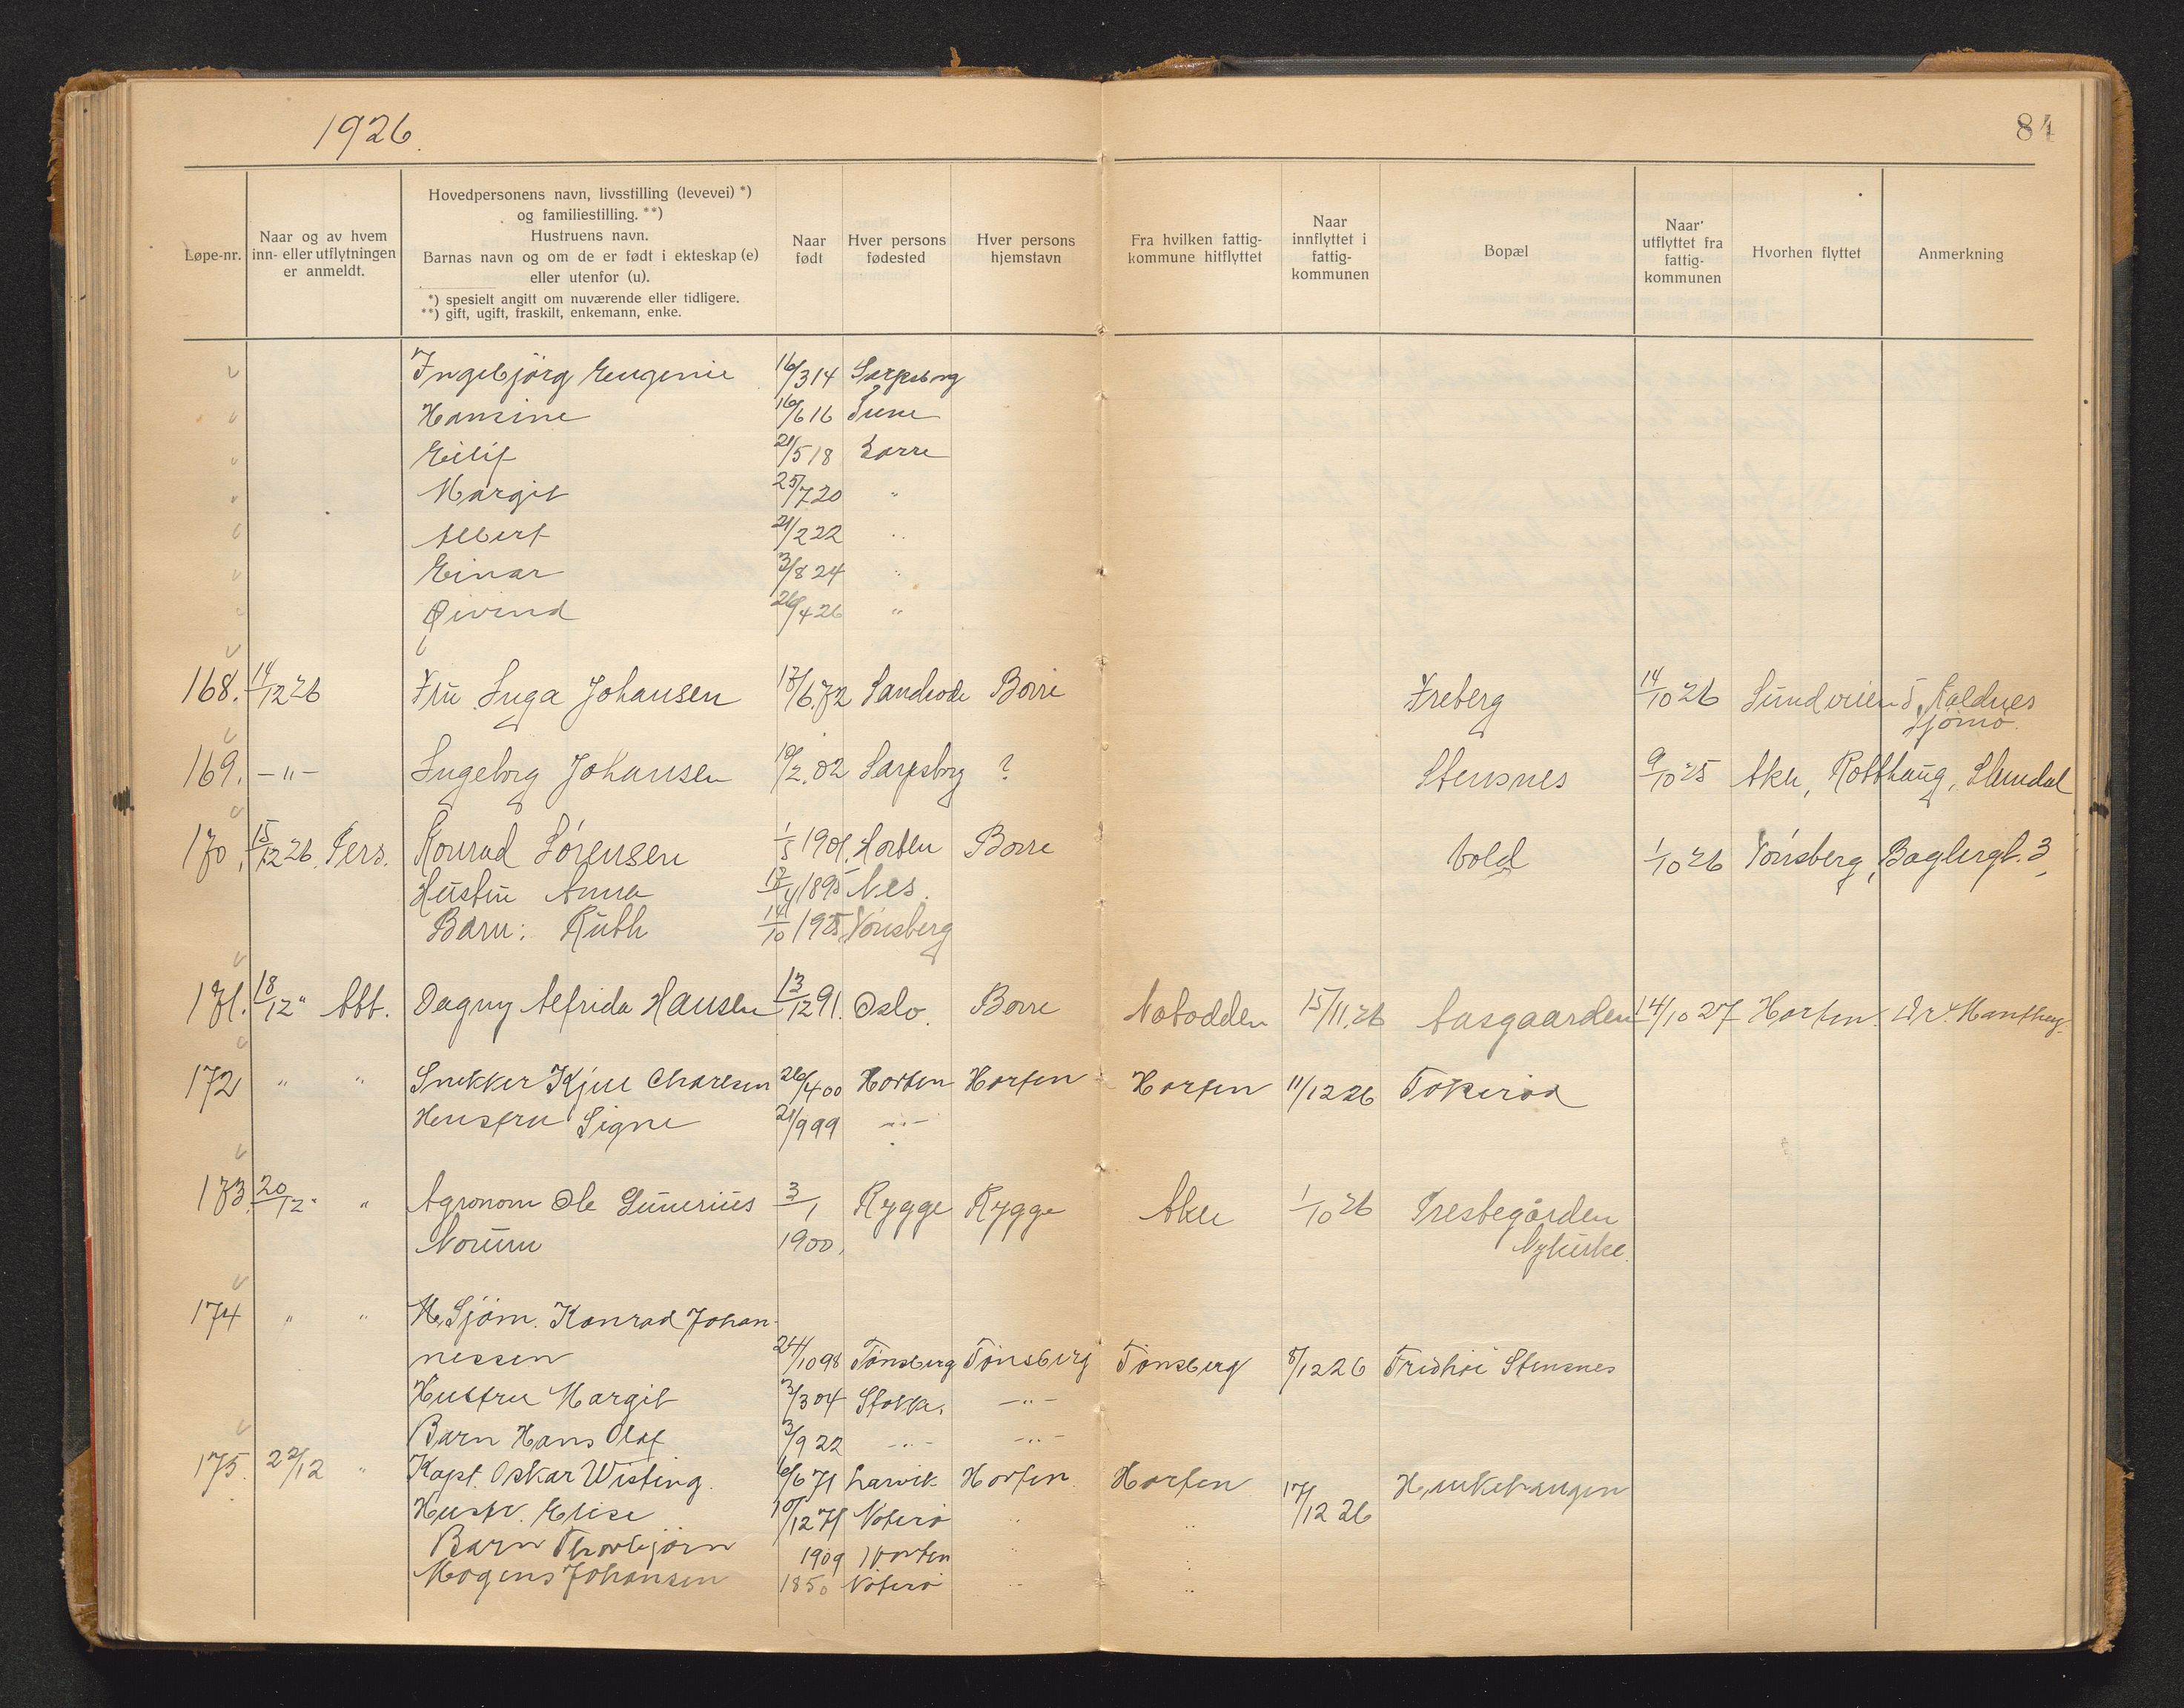 1926.
84
Løpe-nr.
Naar og av hvem
inn- eller utflytningen
er anmeldt.
Hovedpersonens navn, livsstilling (levevei) *)
og familiestilling. **)
Hustruens navn.
Barnas navn og om de er født i ekteskap (e)
eller utenfor (u).
*) spesielt angitt om nuværende eller tidligere.
**) gift, ugift, fraskilt, enkemann, enke.
Naar
født
Hver persons
fødested
Hver persons
hjemstavn
Fra hvilken fattig-
kommune hitflyttet
Naar
innflyttet i
fattig-
kommunen
Bopæl
Naar
utflyttet fra
fattig-
kommunen
Hvorhen flyttet
Anmerkning
Ingebjörg Eugenie 16/3 14 Sarpsborg
Hansine 16/6 16 Tune
Eilif 21/5 18 Borre
Margit 25/7 20 "
Albert 21/2 22 "
Einar 3/8 24 "
Øivind 26/4 26 "
168. 14/12 26 Fru Inga Johansen 17/6.72 Sandeode Borre Freberg 14/10 26 Sundveien 5, Kaldnes
Tjömö.
169. -"- Ingeborg Johansen 19/2.02 Sarpsborg ? Stensnes 9/10 25 Aker, Rotthaug, Slemdal
170. 15/12 26. Pers. Konrad Sörensen 1/5 1901. Horten Borre Vold 1/10 26 Tönsberg, Baglergt. 3
Hustru Anna 17/4 1895 Nes.
Barn: Ruth 14/10 1925 Tönsberg
171. 18/12 " Att. Dagny Alfrida Hansen 13/12 91. Oslo. Borre Notodden 15/11.26 Aasgaarden 14/10 27 Horten.
172 " " Snekker Kjell Charlsen 26/4 00 Horten Horten Horten 11/12 26 Tokeröd
Hustru Signe 21/9 99 -"-
173. 20/12 " " Agronom Ole Gunerius 3/1 Rygge Rygge Aker 1/10 26 Prestegården
Norum 1900. Nykirke.
174 " " M. Sjöm. Konrad Johan-
nessen 24/10 98 Tönsberg Tönsberg Tönsberg 8/12 26 Fridhöi Stensnes
Hustru Margit 3/3 04 Stokke. -"-
Barn Hans Olaf 3/9 22 -"- -"-
175. 22/12 " Kapt. Oskar Wisting. 6/6 71 Larvik Horten Horten 17/12 26
Hustr. Elise 10/12 71 Nöterö " "
Barn Thorbjörn 1909 Horten " "
Mogens Johansen 1850 Nöterö " "